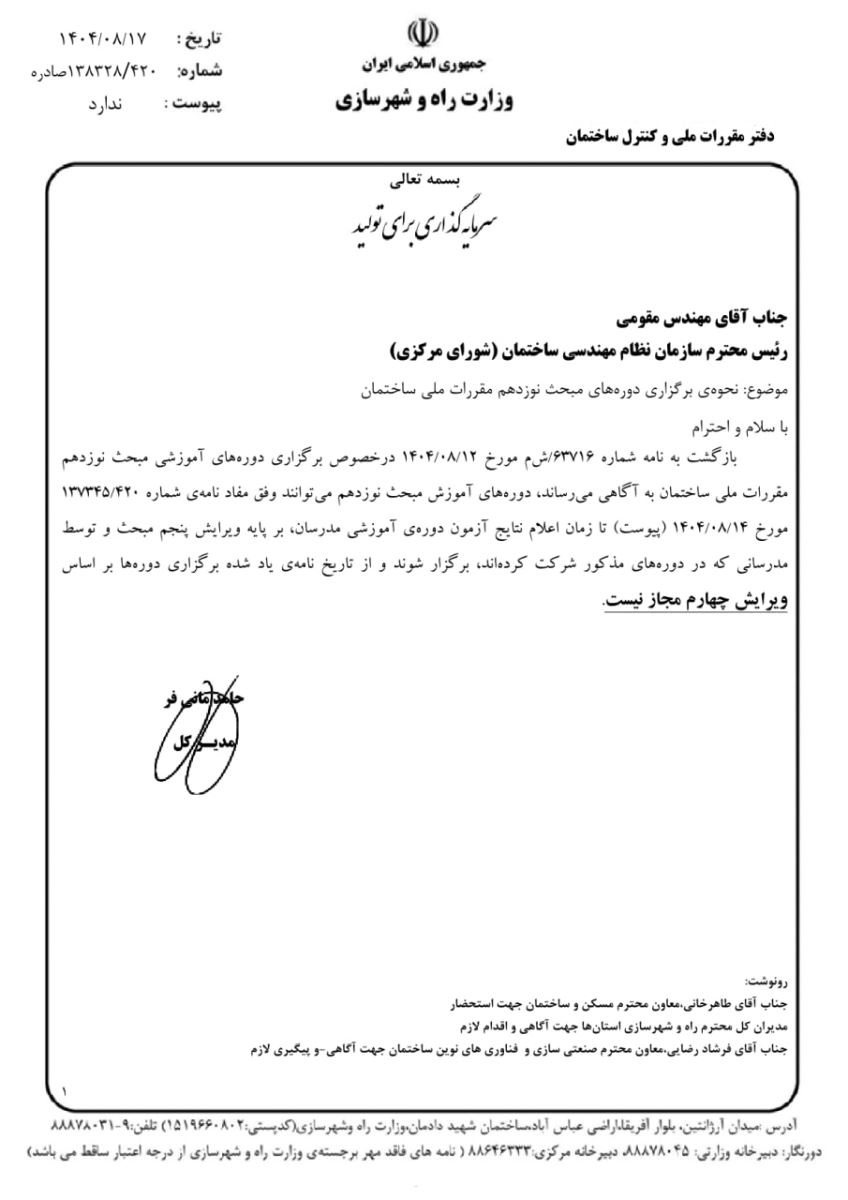 تاریخ : ۱۴۰۴/۰۸/۱۷
شماره: ۱۳۸۳۲۸/۴۲۰صادره
پیوست : ندارد
جمهوری اسلامی ایران
وزارت راه و شهرسازی
دفتر مقررات ملی و کنترل ساختمان
بسمه تعالی
سرمایه گذاری برای تولید
جناب آقای مهندس مقومی
رئیس محترم سازمان نظام مهندسی ساختمان (شورای مرکزی)
موضوع: نحوه‌ی برگزاری دوره‌های مبحث نوزدهم مقررات ملی ساختمان
با سلام و احترام
بازگشت به نامه شماره ۶۳۷۱۶/ش‌م مورخ ۱۴۰۴/۰۸/۱۲ درخصوص برگزاری دوره‌های آموزشی مبحث نوزدهم
مقررات ملی ساختمان به آگاهی می‌رساند، دوره‌های آموزش مبحث نوزدهم می‌توانند وفق مفاد نامه‌ی شماره ۱۳۷۳۴۵/۴۲۰
مورخ ۱۴۰۴/۰۸/۱۴ (پیوست) تا زمان اعلام نتایج آزمون دوره‌ی آموزشی مدرسان، بر پایه ویرایش پنجم مبحث و توسط
مدرسانی که در دوره‌های مذکور شرکت کرده‌اند، برگزار شوند و از تاریخ نامه‌ی یاد شده برگزاری دوره‌ها بر اساس
ویرایش چهارم مجاز نیست.
حامد مانی فر
مدیـر کل
رونوشت:
جناب آقای طاهرخانی،معاون محترم مسکن و ساختمان جهت استحضار
مدیران کل محترم راه و شهرسازی استان‌ها جهت آگاهی و اقدام لازم
جناب آقای فرشاد رضایی،معاون محترم صنعتی سازی و فناوری های نوین ساختمان جهت آگاهی-و پیگیری لازم
۱
آدرس :میدان آرژانتین، بلوار آفریقا،اراضی عباس آباد،ساختمان شهید دادمان،وزارت راه وشهرسازی(کدپستی:۱۵۱۹۶۶۰۸۰۲) تلفن:۹-۸۸۸۷۸۰۳۱
دورنگار: دبیرخانه وزارتی: ۸۸۸۷۸۰۴۵، دبیرخانه مرکزی:۸۸۶۴۶۳۳۳ ( نامه های فاقد مهر برجسته‌ی وزارت راه و شهرسازی از درجه اعتبار ساقط می باشد)